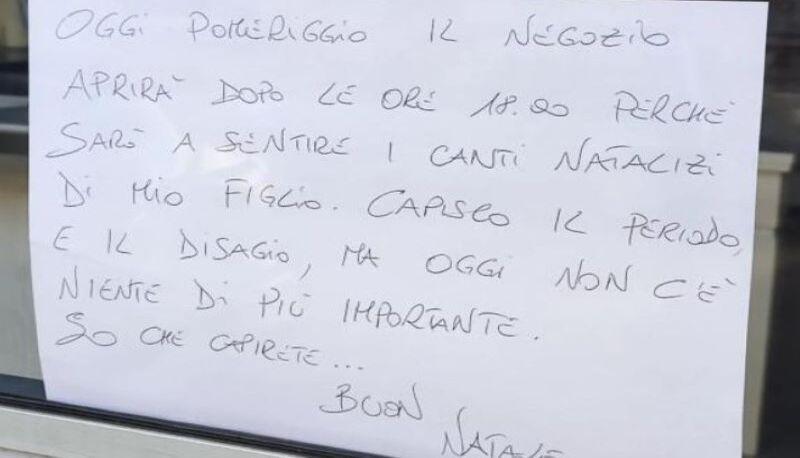 OGGI POMERIGGIO IL NEGOZIO
APRIRÀ DOPO LE ORE 18.00 PERCHÈ
SARÒ A SENTIRE I CANTI NATALIZI
DI MIO FIGLIO. CAPISCO IL PERIODO,
E IL DISAGIO, MA OGGI NON C'È
NIENTE DI PIÙ IMPORTANTE.
SO CHE CAPIRETE...
BUON
NATALE